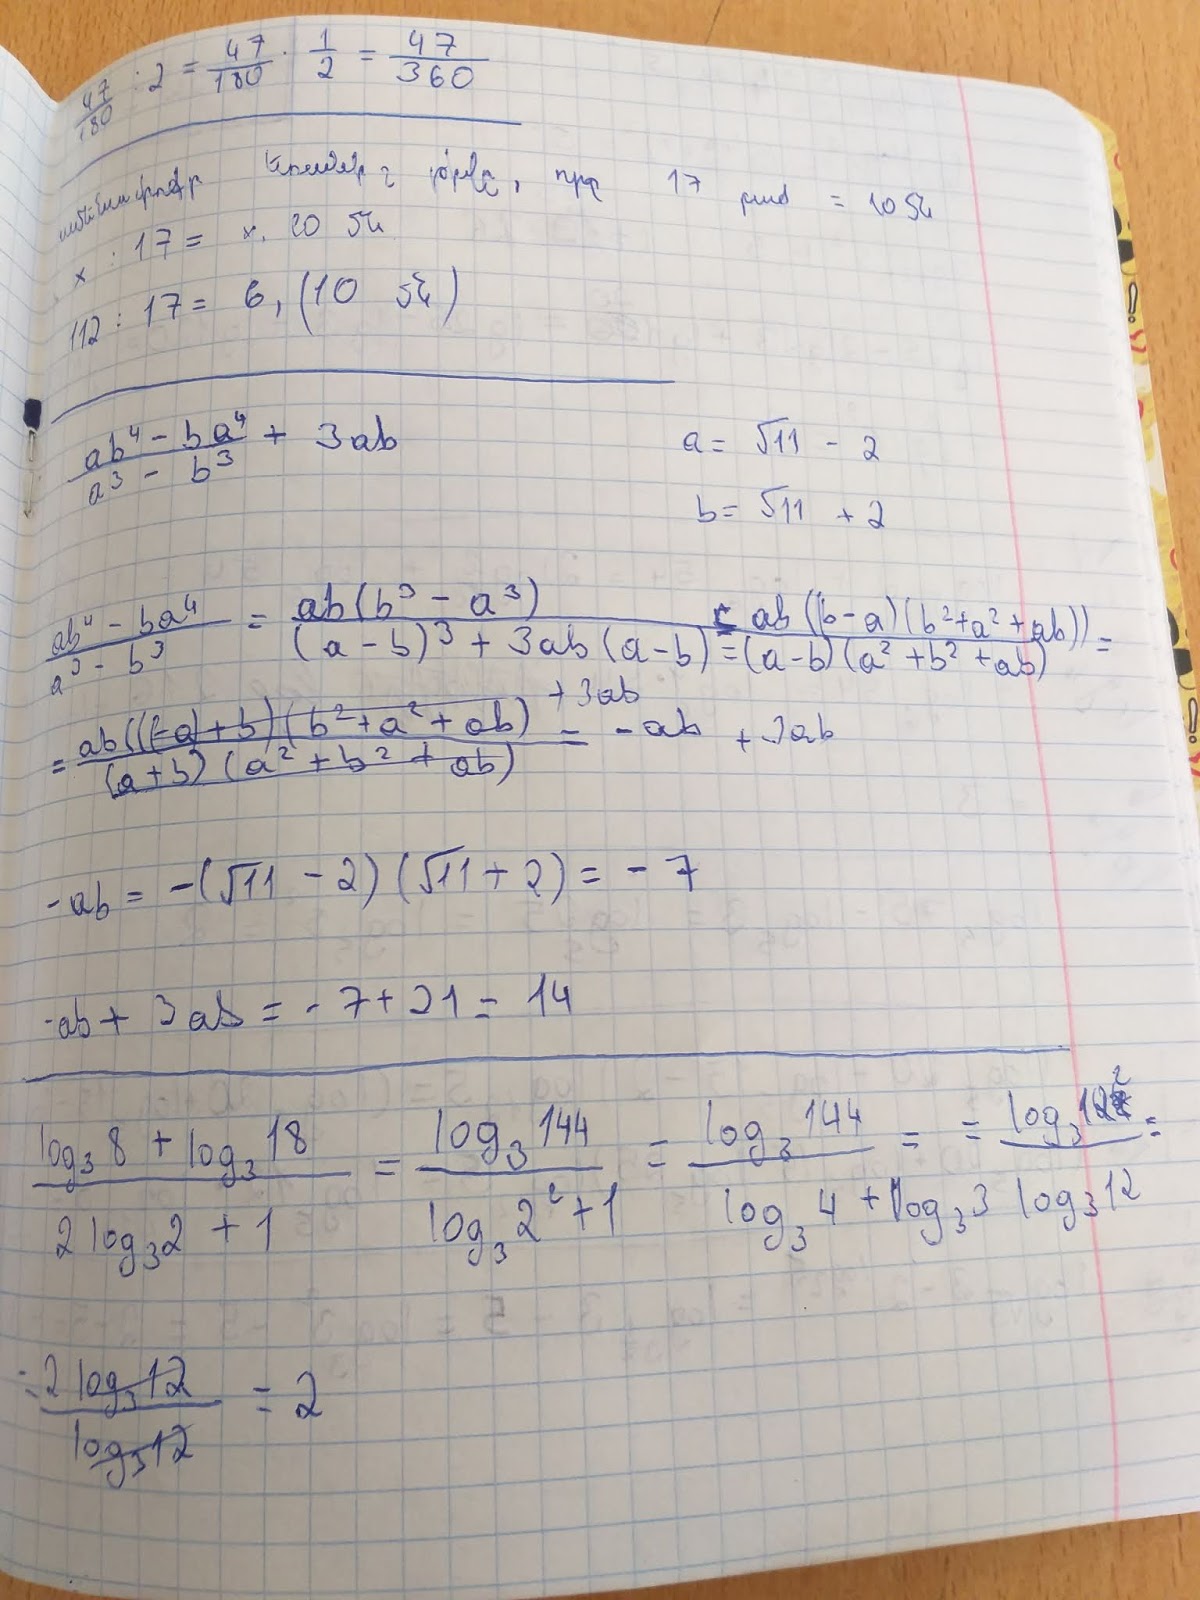 47/180 : 2 = 47/180 · 1/2 = 47/360
17 = 10 մն
x : 17 = x. 10 մն
112 : 17 = 6, (10 մն)
(ab⁴ - ba⁴)/(a³ - b³) + 3ab a = √11 - 2
b = √11 + 2
(ab⁴ - ba⁴)/(a³ - b³) = ab(b³ - a³)/((a - b)³ + 3ab(a - b)) = ab((b-a)(b²+a²+ab))/((a-b)(a²+b²+ab)) =
= ab((-a)+b)(b²+a²+ab)/((a+b)(a²+b²+ab)) + 3ab = -ab + 3ab
-ab = -(√11 - 2)(√11 + 2) = -7
-ab + 3ab = -7 + 21 = 14
(log₃8 + log₃18)/(2log₃2 + 1) = log₃144/(log₃2² + 1) = log₃144/(log₃4 + log₃3) = = log₃12²/log₃12 =
= 2log₃12/log₃12 = 2